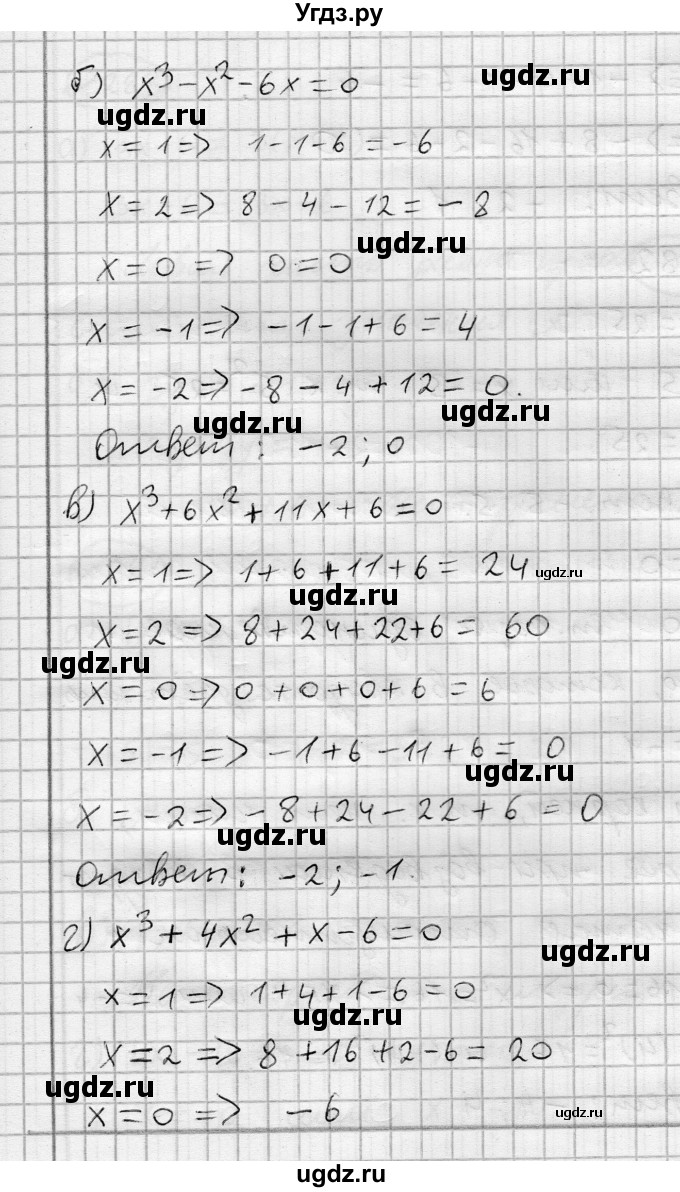 Угдз.ру
б) x³ - x² - 6x = 0
ugdz.ru
ugdz.ru
x = 1 => 1 - 1 - 6 = -6
x = 2 => 8 - 4 - 12 = -8
ugdz.ru
x = 0 => 0 = 0
x = -1 => -1 - 1 + 6 = 4
x = -2 => -8 - 4 + 12 = 0.
ugdz.ru
ugdz.ru
Ответ: -2; 0
в) x³ + 6x² + 11x + 6 = 0
x = 1 => 1 + 6 + 11 + 6 = 24
ugdz.ru
ugdz.ru
x = 2 => 8 + 24 + 22 + 6 = 60
ugdz.ru
x = 0 => 0 + 0 + 0 + 6 = 6
x = -1 => -1 + 6 - 11 + 6 = 0
ugdz.ru
x = -2 => -8 + 24 - 22 + 6 = 0
ugdz.ru
Ответ: -2; -1.
г) x³ + 4x² + x - 6 = 0
ugdz.ru
x = 1 => 1 + 4 + 1 - 6 = 0
ugdz.ru
x = 2 => 8 + 16 + 2 - 6 = 20
ugdz.ru
x = 0 => -6
ugdz.ru
ugdz.ru